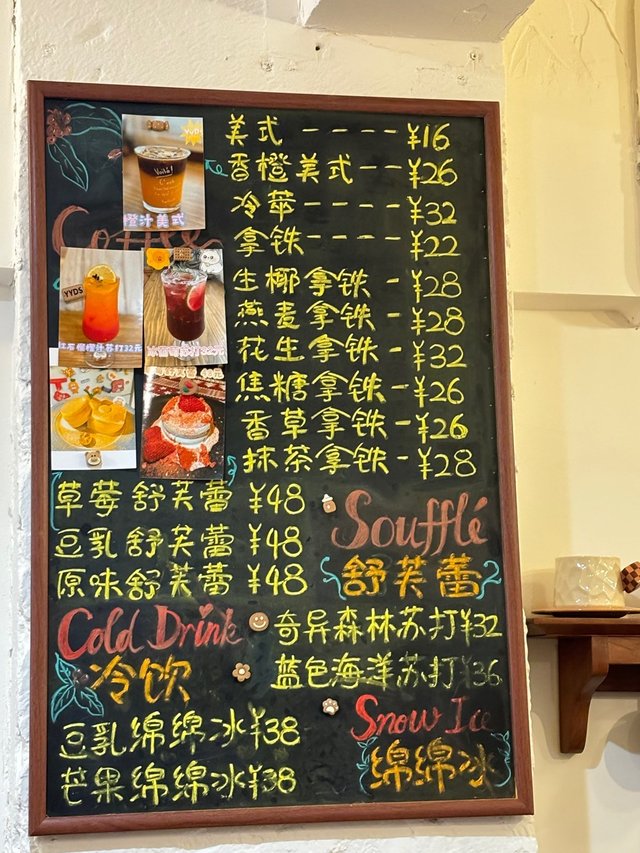 美式 ---- ¥16
香橙美式 -- ¥26
冷萃 ---- ¥32
拿铁 ---- ¥22
生椰拿铁 - ¥28
燕麦拿铁 - ¥28
花生拿铁 - ¥32
焦糖拿铁 - ¥26
香草拿铁 - ¥26
抹茶拿铁 - ¥28
Coffee
YYDS
Voilà!
橙汁美式
YYDS
打32元
打32元
草莓舒芙蕾 ¥48
豆乳舒芙蕾 ¥48
原味舒芙蕾 ¥48
Soufflé
舒芙蕾
Cold Drink
冷饮
奇异森林苏打¥32
蓝色海洋苏打¥36
豆乳绵绵冰¥38
芒果绵绵冰¥38
Snow Ice
绵绵冰